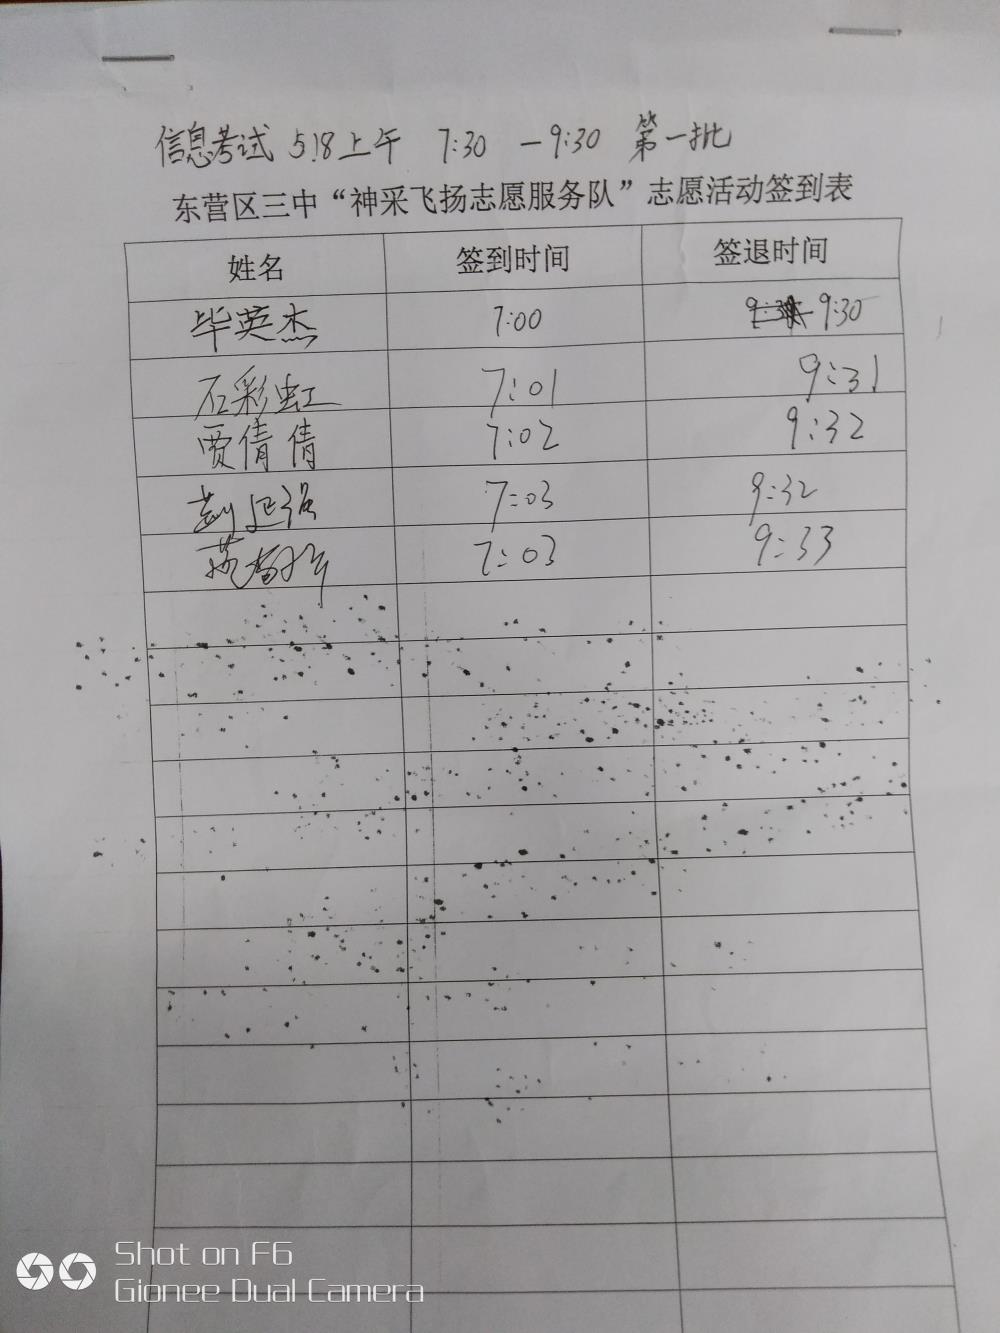 信息考试 5.18上午 7:30 —9:30 第一批
东营区三中“神采飞扬志愿服务队”志愿活动签到表
姓名 签到时间 签退时间
毕英杰 7:00 9:30
石彩虹 7:01 9:31
贾倩倩 7:02 9:32
7:03 9:32
7:03 9:33
Shot on F6
Gionee Dual Camera